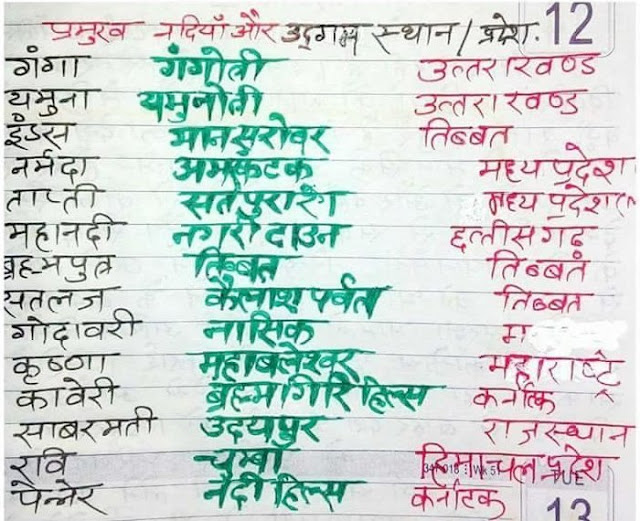 प्रमुख नदियाँ और उद्गम स्थान / प्रदेश. 12
गंगा गंगोत्री उत्तराखण्ड
यमुना यमुनोत्री उत्तराखण्ड
इंडस मानसरोवर तिब्बत
नर्मदा अमरकंटक मध्य प्रदेश
ताप्ती सतपुरा रेंग मध्य प्रदेश
महानदी नगरी टाउन छत्तीसगढ़
ब्रह्मपुत्र तिब्बत तिब्बत
सतलज कैलाश पर्वत तिब्बत
गोदावरी नासिक म
कृष्णा महाबलेश्वर महाराष्ट्र
कावेरी ब्रह्मागिरि हिल्स कर्नाटक
साबरमती उदयपुर राजस्थान
रवि चम्बा हिमाचल प्रदेश
पेन्नेर नंदी हिल्स कर्नाटक
TUE
13